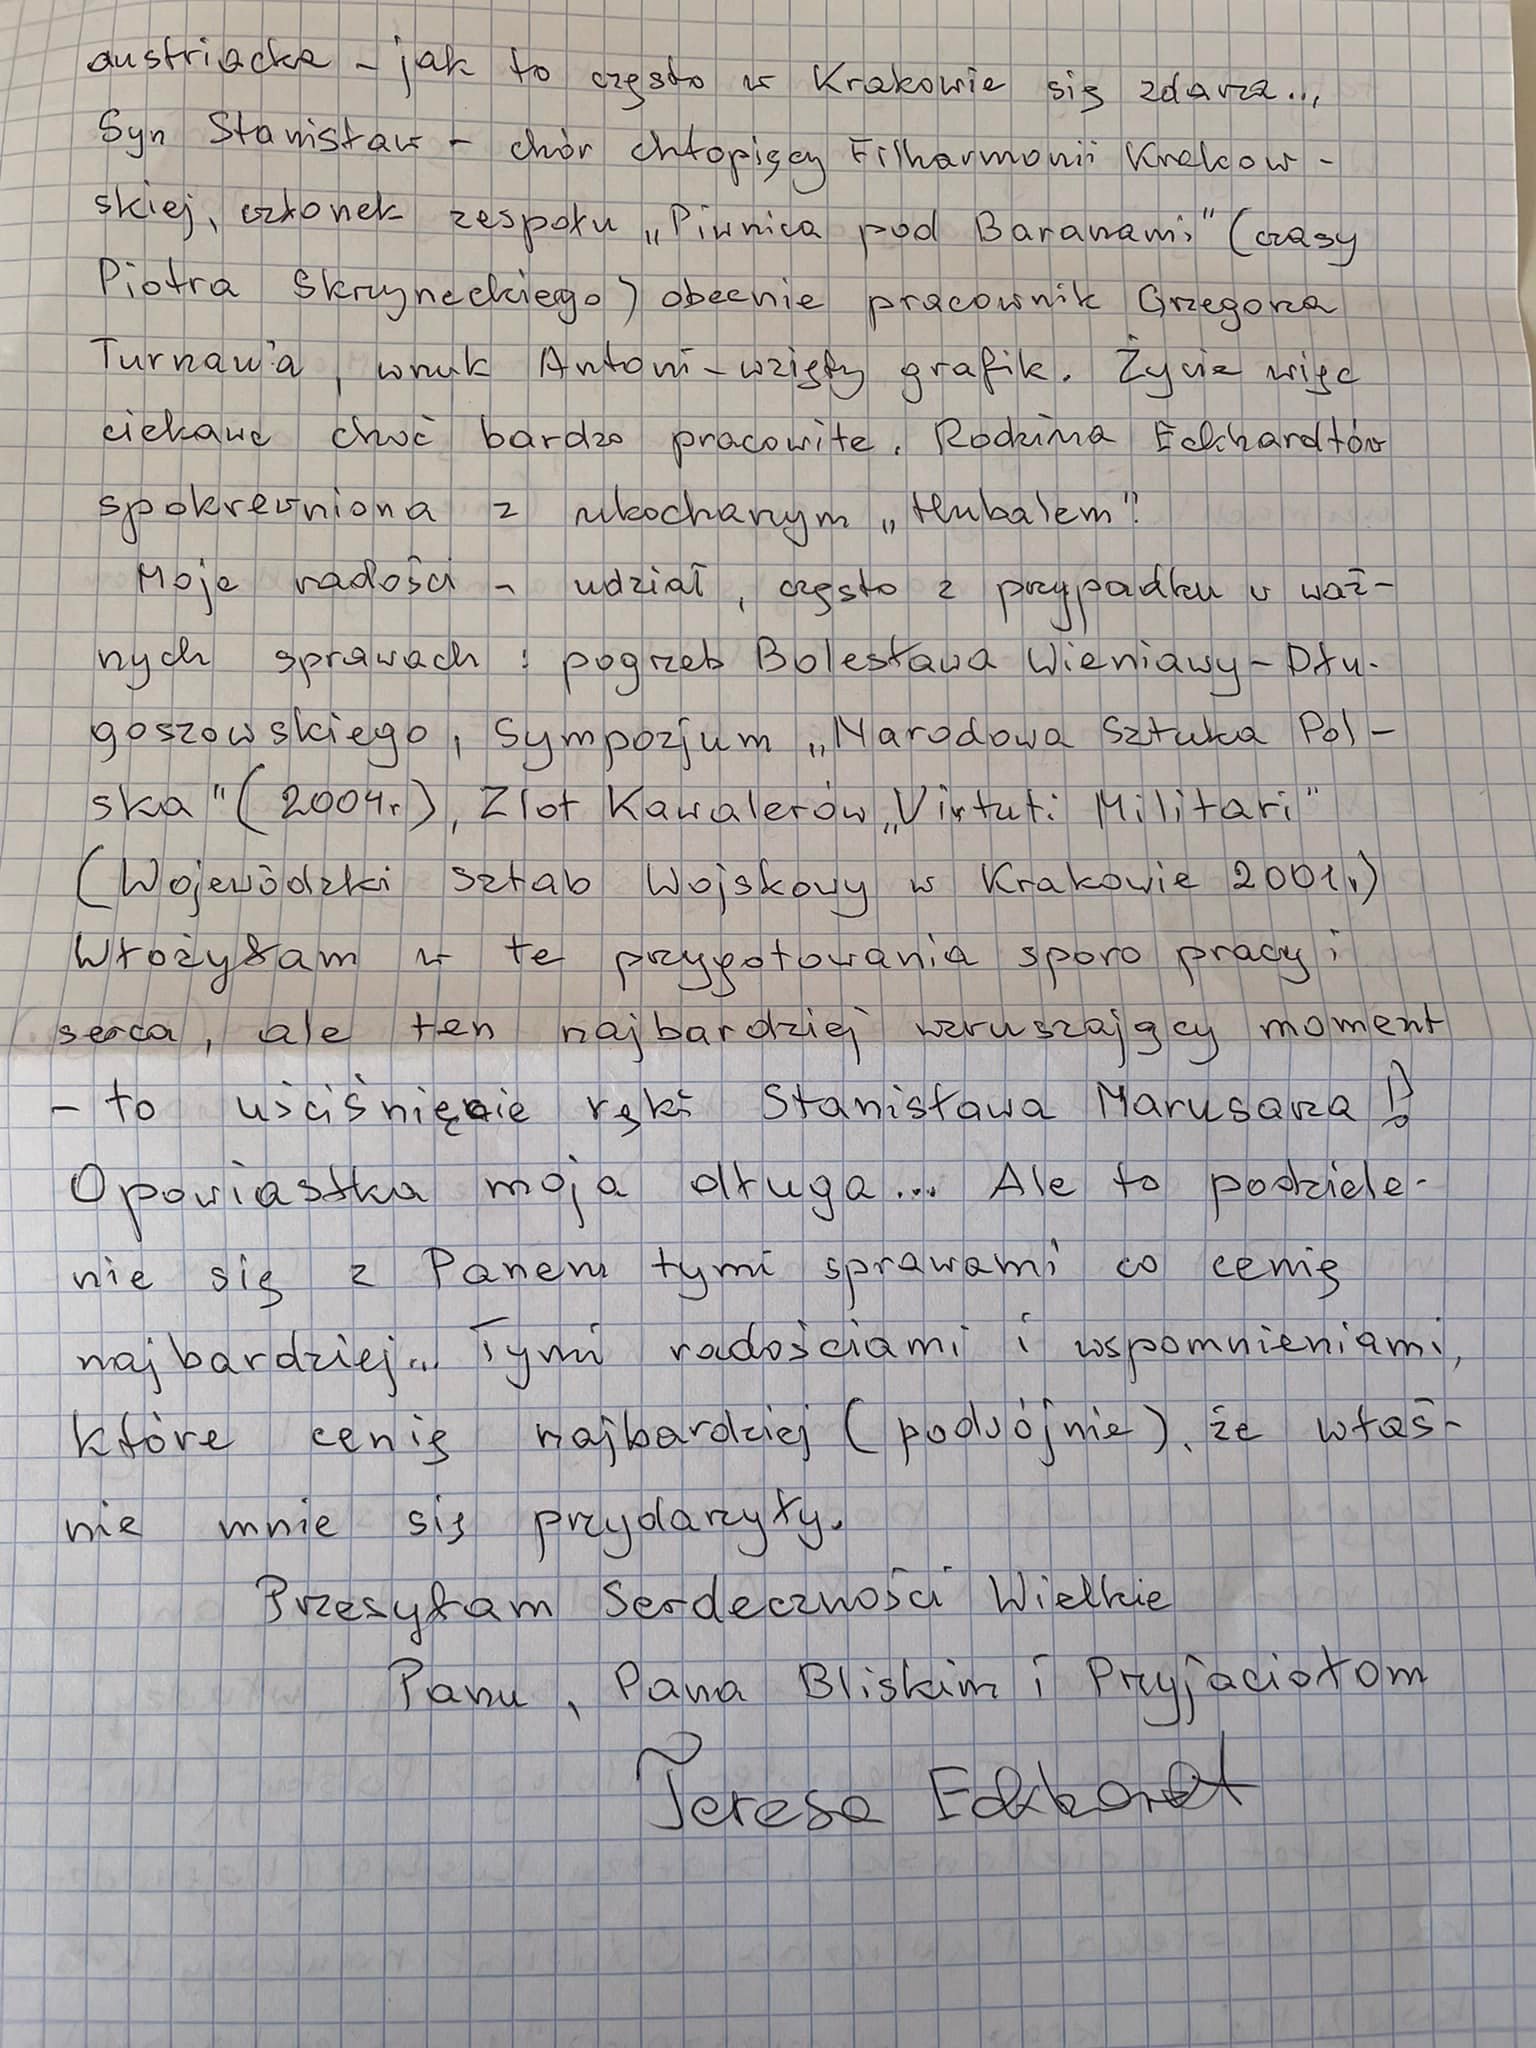 austriacka – jak to często w Krakowie się zdarza...
Syn Stanisław – chór chłopięcy Filharmonii Krakow-
skiej, członek zespołu „Piwnica pod Baranami" (czasy
Piotra Skrzyneckiego) obecnie pracownik Grzegorza
Turnau'a, wnuk Antoni – wzięty grafik. Życie więc
ciekawe choć bardzo pracowite. Rodzina Eckhardtów
spokrewniona z ukochanym „Hubalem"!
Moje radości – udział, często z przypadku w waż-
nych sprawach: pogrzeb Bolesława Wieniawy-Dłu-
goszowskiego, Sympozjum „Narodowa Sztuka Pol-
ska" (2004r), Zlot Kawalerów „Virtuti Militari"
(Wojewódzki Sztab Wojskowy w Krakowie 2001r)
Włożyłam w te przygotowania sporo pracy i
serca, ale ten najbardziej wzruszający moment
– to uściśnięcie ręki Stanisława Marusarza!!
Opowiastka moja długa... Ale to podziele-
nie się z Panem tymi sprawami co cenię
najbardziej... Tymi radościami i wspomnieniami,
które cenię najbardziej (podwójnie), że właś-
nie mnie się przydarzyły.
Przesyłam Serdeczności Wielkie
Panu, Pana Bliskim i Przyjaciołom
Teresa Eckhardt